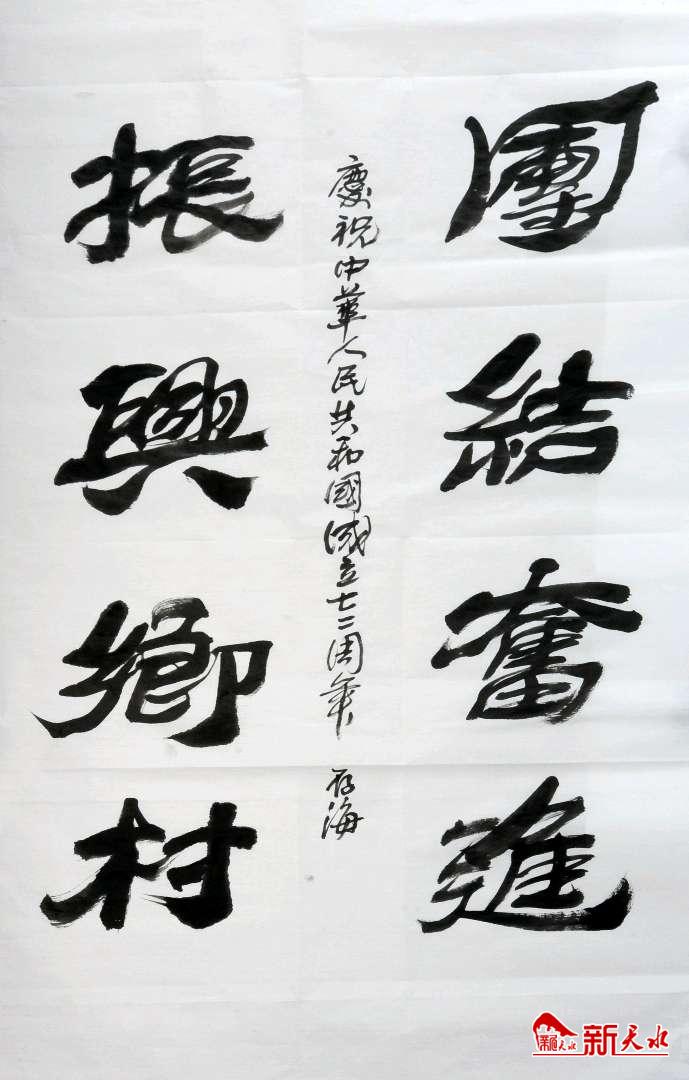 團結奮進
振興鄉村
慶祝中華人民共和國成立七二周年 存海
新天水